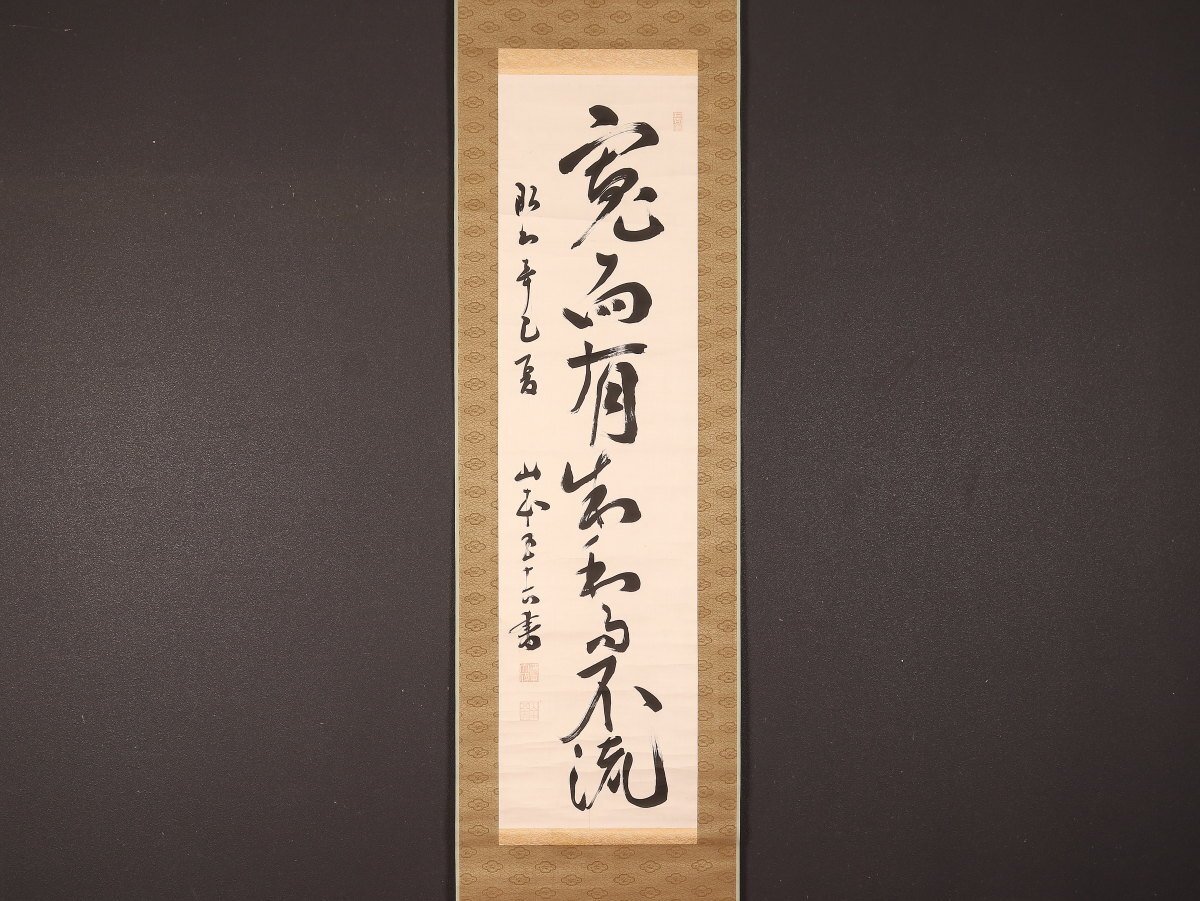 寛而有制和而不流
昭和辛巳夏 山本五十六書